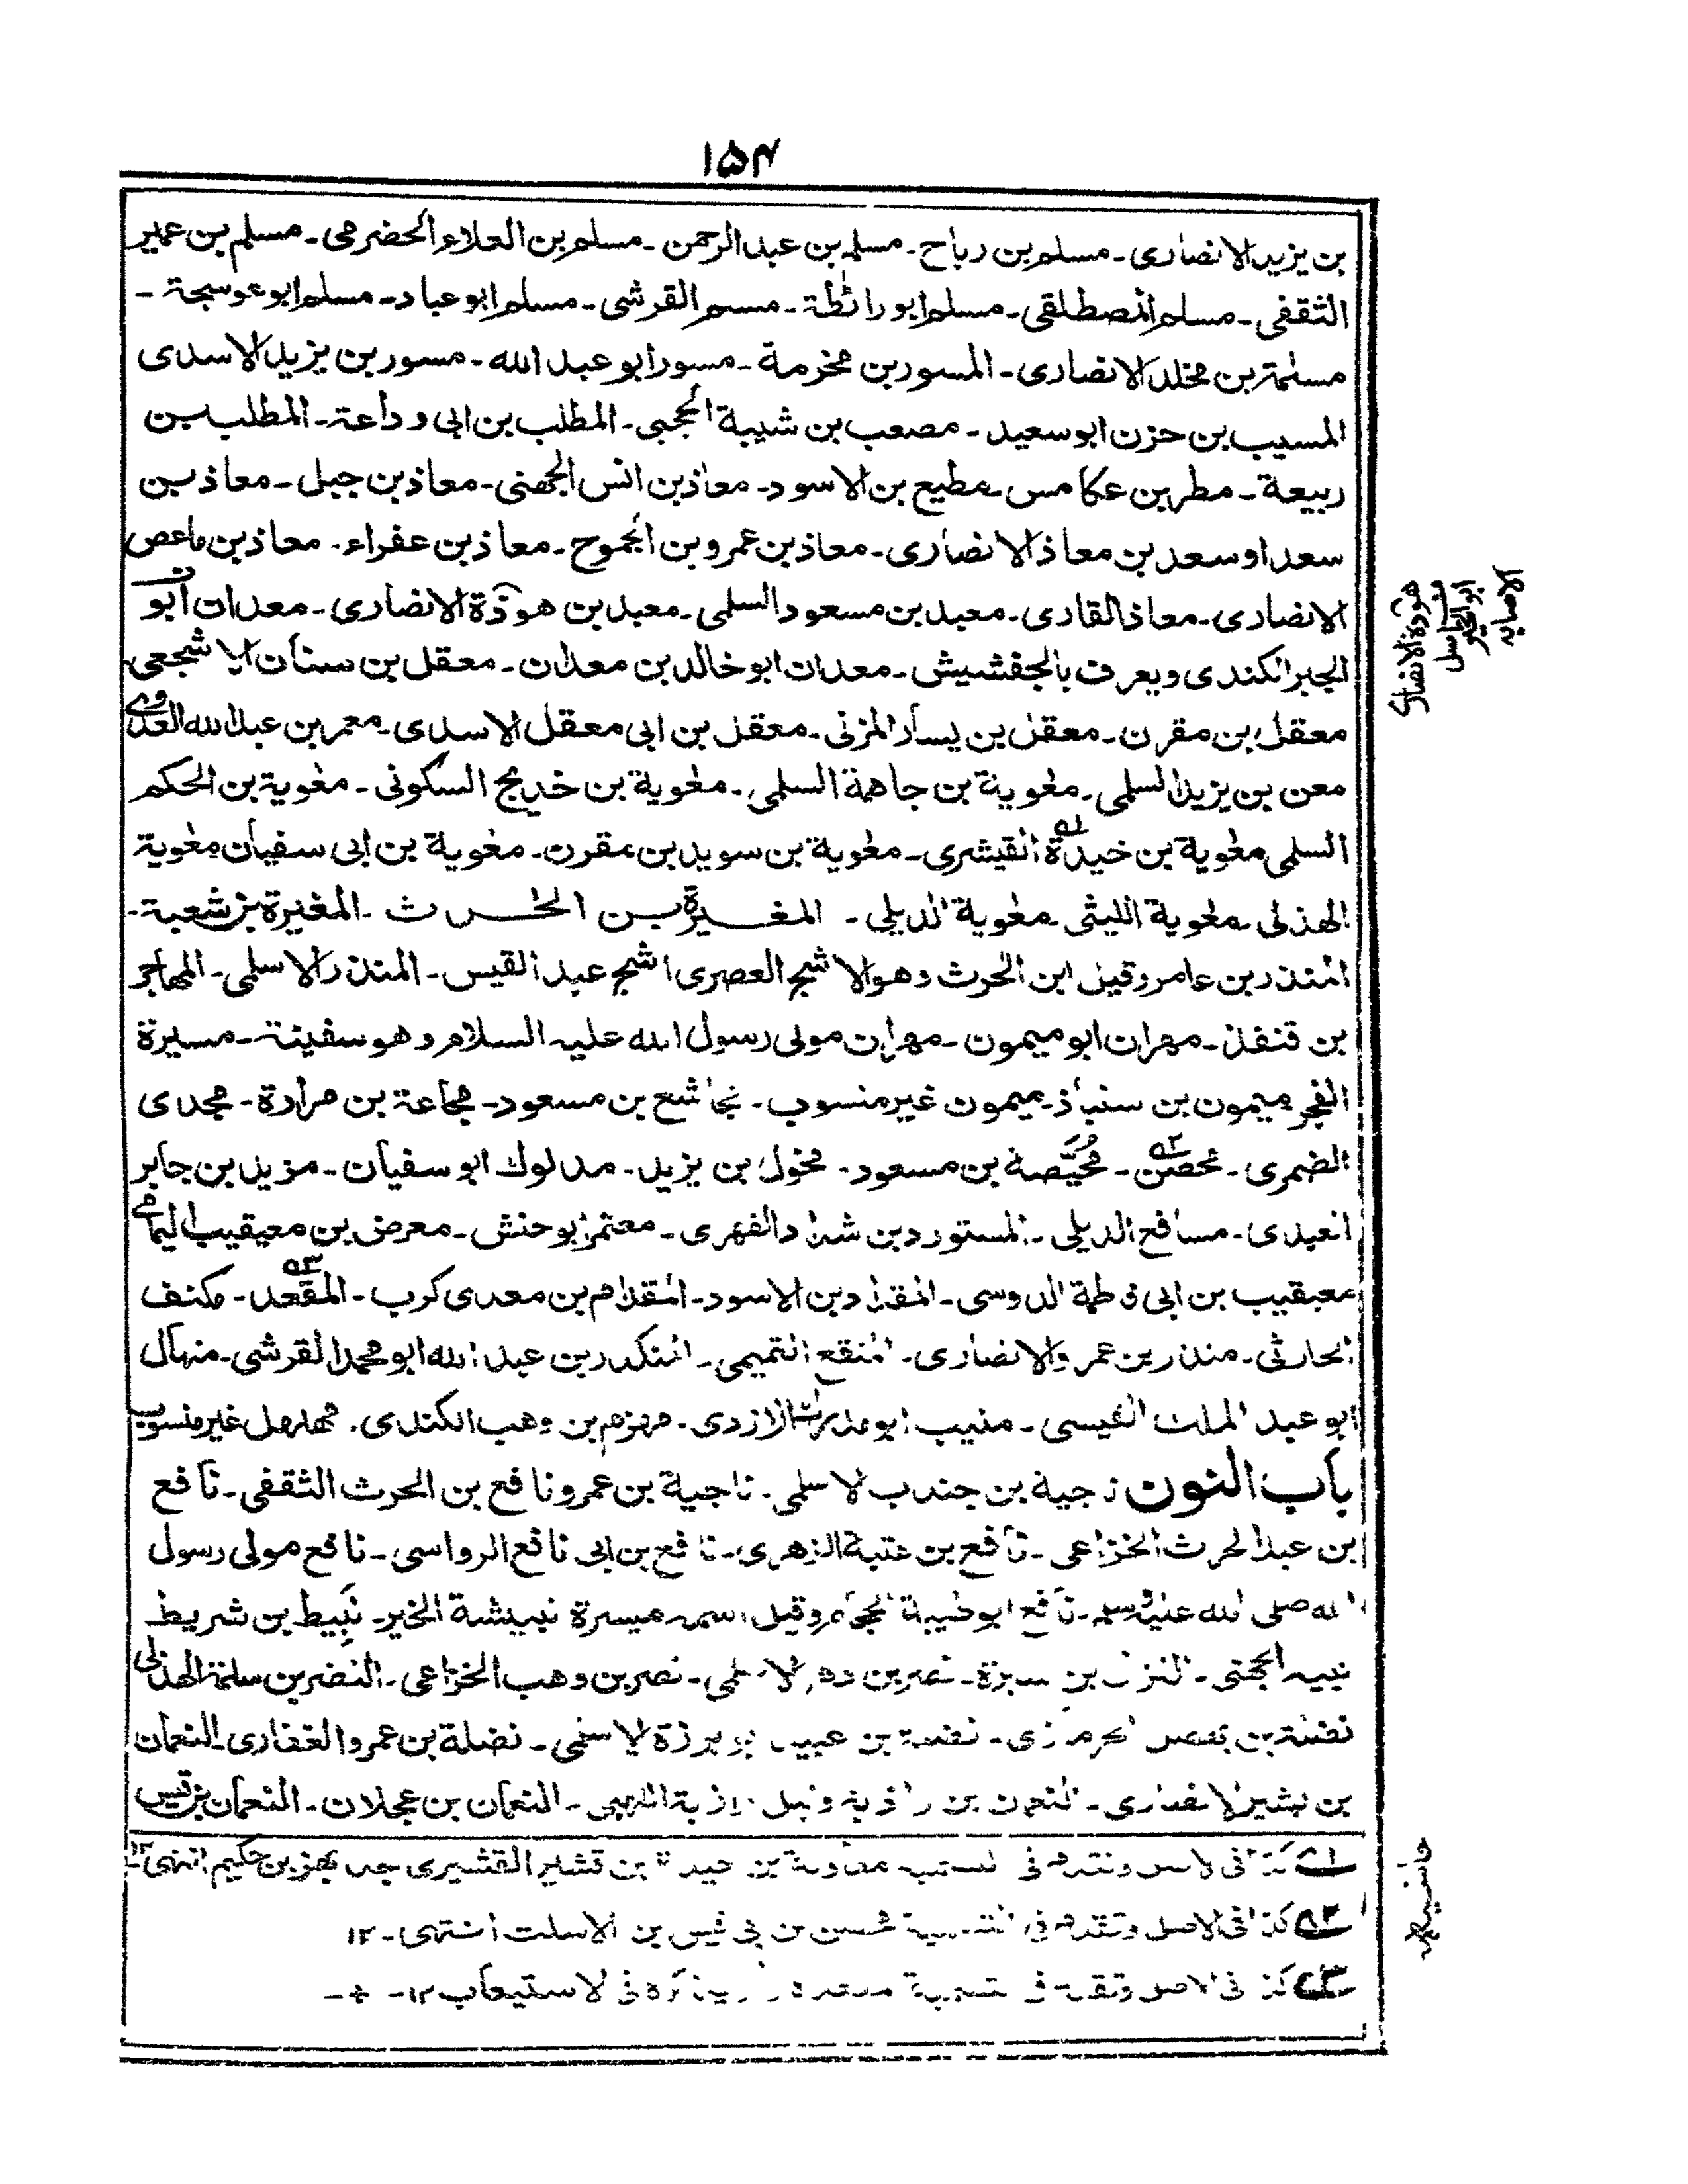 ١٥٤
بن يزيد الانصارى ـ مسلم بن رباح ـ مسلم بن عبد الرحمن ـ مسلم بن العلاء الحضرمى ـ مسلم بن عمير
الثقفى ـ مسلم المصطلقى ـ مسلم ابو رائطة ـ مسلم القرشى ـ مسلم ابو عباد ـ مسلم ابو عوسجة ـ
مسلمة بن مخلد الانصارى ـ المسور بن مخرمة ـ مسور ابو عبد الله ـ مسور بن يزيد الاسدى
المسيب بن حزن ابو سعيد ـ مصعب بن شيبة الحجبى ـ المطلب بن ابى وداعة ـ المطلب بن
ربيعة ـ مطر بن عكامس ـ مطيع بن الاسود ـ معاذ بن انس الجهنى ـ معاذ بن جبل ـ معاذ بن
سعد او سعد بن معاذ الانصارى ـ معاذ بن عمرو بن الجموح ـ معاذ بن عفراء ـ معاذ بن ماعص
الانصارى ـ معاذ القارى ـ معبد بن مسعود السلمى ـ معبد بن هوذة الانصارى ـ معدان ابو
الجبر الكندى ويعرف بالجفشيش ـ معدان ابو خالد بن معدان ـ معقل بن سنان الاشجعى
معقل بن مقرن ـ معقل بن يسار المزنى ـ معقل بن ابى معقل الاسدى ـ معمر بن عبد الله العدوى
معن بن يزيد السلمى ـ معٰوية بن جاهمة السلمى ـ معٰوية بن خديج السكونى ـ معٰوية بن الحكم
السلمى معٰوية بن خيدة القيشرى ـ معٰوية بن سويد بن مقرن ـ معٰوية بن ابى سفيان معٰوية
الهذلى ـ معٰوية الليثى ـ معٰوية الديلى ـ المغيرة بن الحٰرث ـ المغيرة بن شعبة ـ
المنذر بن عامر وقيل ابن الحرث وهو الاشج العصرى اشج عبد القيس ـ المنذر الاسلمى ـ المهاجر
بن قنفذ ـ مهران ابو ميمون ـ مهران مولى رسول الله عليه السلام وهو سفينة ـ مسيرة
الفجر ميمون بن سنباذ ـ ميمون غير منسوب ـ مجاشع بن مسعود ـ مجاعة بن مرارة ـ مجدى
الضمرى ـ محصن ـ مُحَيّصة بن مسعود ـ مخول بن يزيد ـ مدلوك ابو سفيان ـ مزيد بن جابر
العبدى ـ مسافع الديلى ـ المستورد بن شداد الفهرى ـ معتمر ابو حنش ـ معرض بن معيقيب اليمامى
معيقيب بن ابى فاطمة الدوسى ـ المقداد بن الاسود ـ المقدام بن معدى كرب ـ المقعد ـ مكنف
الحارثى ـ منذر بن عمرو الانصارى ـ المنقع التميمى ـ المنكدر بن عبد الله ابو محمد القرشى ـ منهال
ابو عبد الملك القيسى ـ منيب ابو مدرك الازدى ـ مهزم بن وهب الكندى ـ مهلهل غير منسوب
باب النون ناجية بن جندب الاسلمى ـ ناجية بن عمرو نافع بن الحرث الثقفى ـ نافع
بن عبد الحرث الخزاعى ـ نافع بن عتبة الزهرى ـ نافع بن ابى نافع الرواسى ـ نافع مولى رسول
الله صلى الله عليه وسلم ـ نافع ابو طيبة الحجام وقيل اسمه ميسرة نبيشة الخير ـ نبيط بن شريط
نبيه الجهنى ـ النزال بن سبرة ـ نصر بن دهر الاسلمى ـ نصر بن وهب الخزاعى ـ النضر بن سلمة الهذلى
نضلة بن الحرمازى ـ نضلة بن عبيد ابو برزة الاسلمى ـ نضلة بن عمرو الغفارى ـ النعمان
بن بشير الانصارى ـ النعمان بن ـ النعمان بن عجلان ـ النعمان بن قيس
هوذة الانصارى
ابو الخير
الاصابه
حاشيه
١ كذا فى الاصل وتقدم فى معاوية بن حيدة بن قشير القشيرى جد بهز بن حكيم انتهى ١٢
٢ كذا فى الاصل وتقدم فى بن ابى قيس بن الاسلت انتهى ـ ١٢
٣ كذا فى الاصل وتقدم فى فى الاستيعاب ١٢ ـ